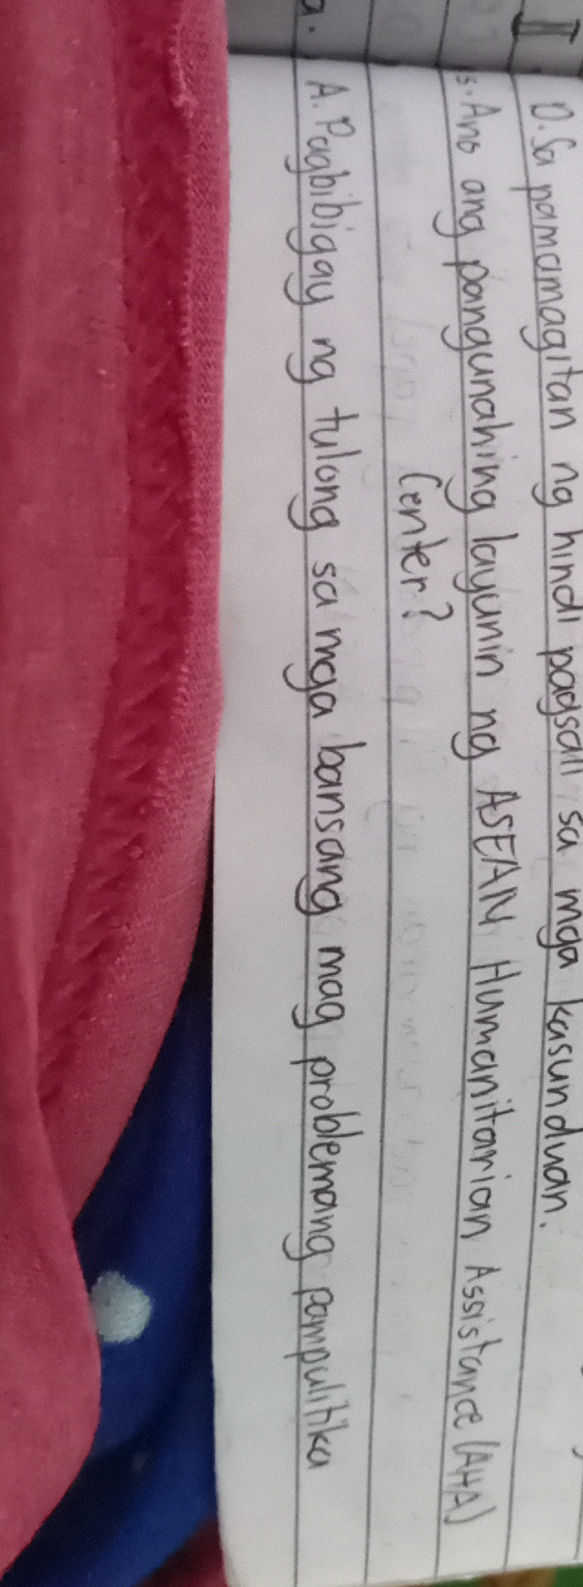 D. Sa pamamagitan ng hindi pagsali sa mga kasunduan.
5. Ano ang pangunahing layunin ng ASEAN Humanitarian Assistance (AHA)
Center?
A. Pagbibigay ng tulong sa mga bansang mag problemang pampulitika